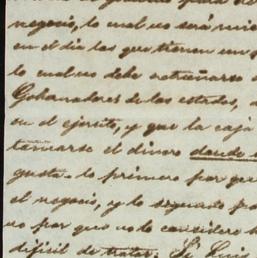 negocio, lo cual no será
en el dia las que tienen un
lo cual no debe estrañarse
Gobernadores de los estados,
en el ejercito, y que la caja
el dinero donde
gusta lo primero por que
el negocio, y lo segundo
no por que no lo considero
dificil de tratar. Sr Luis